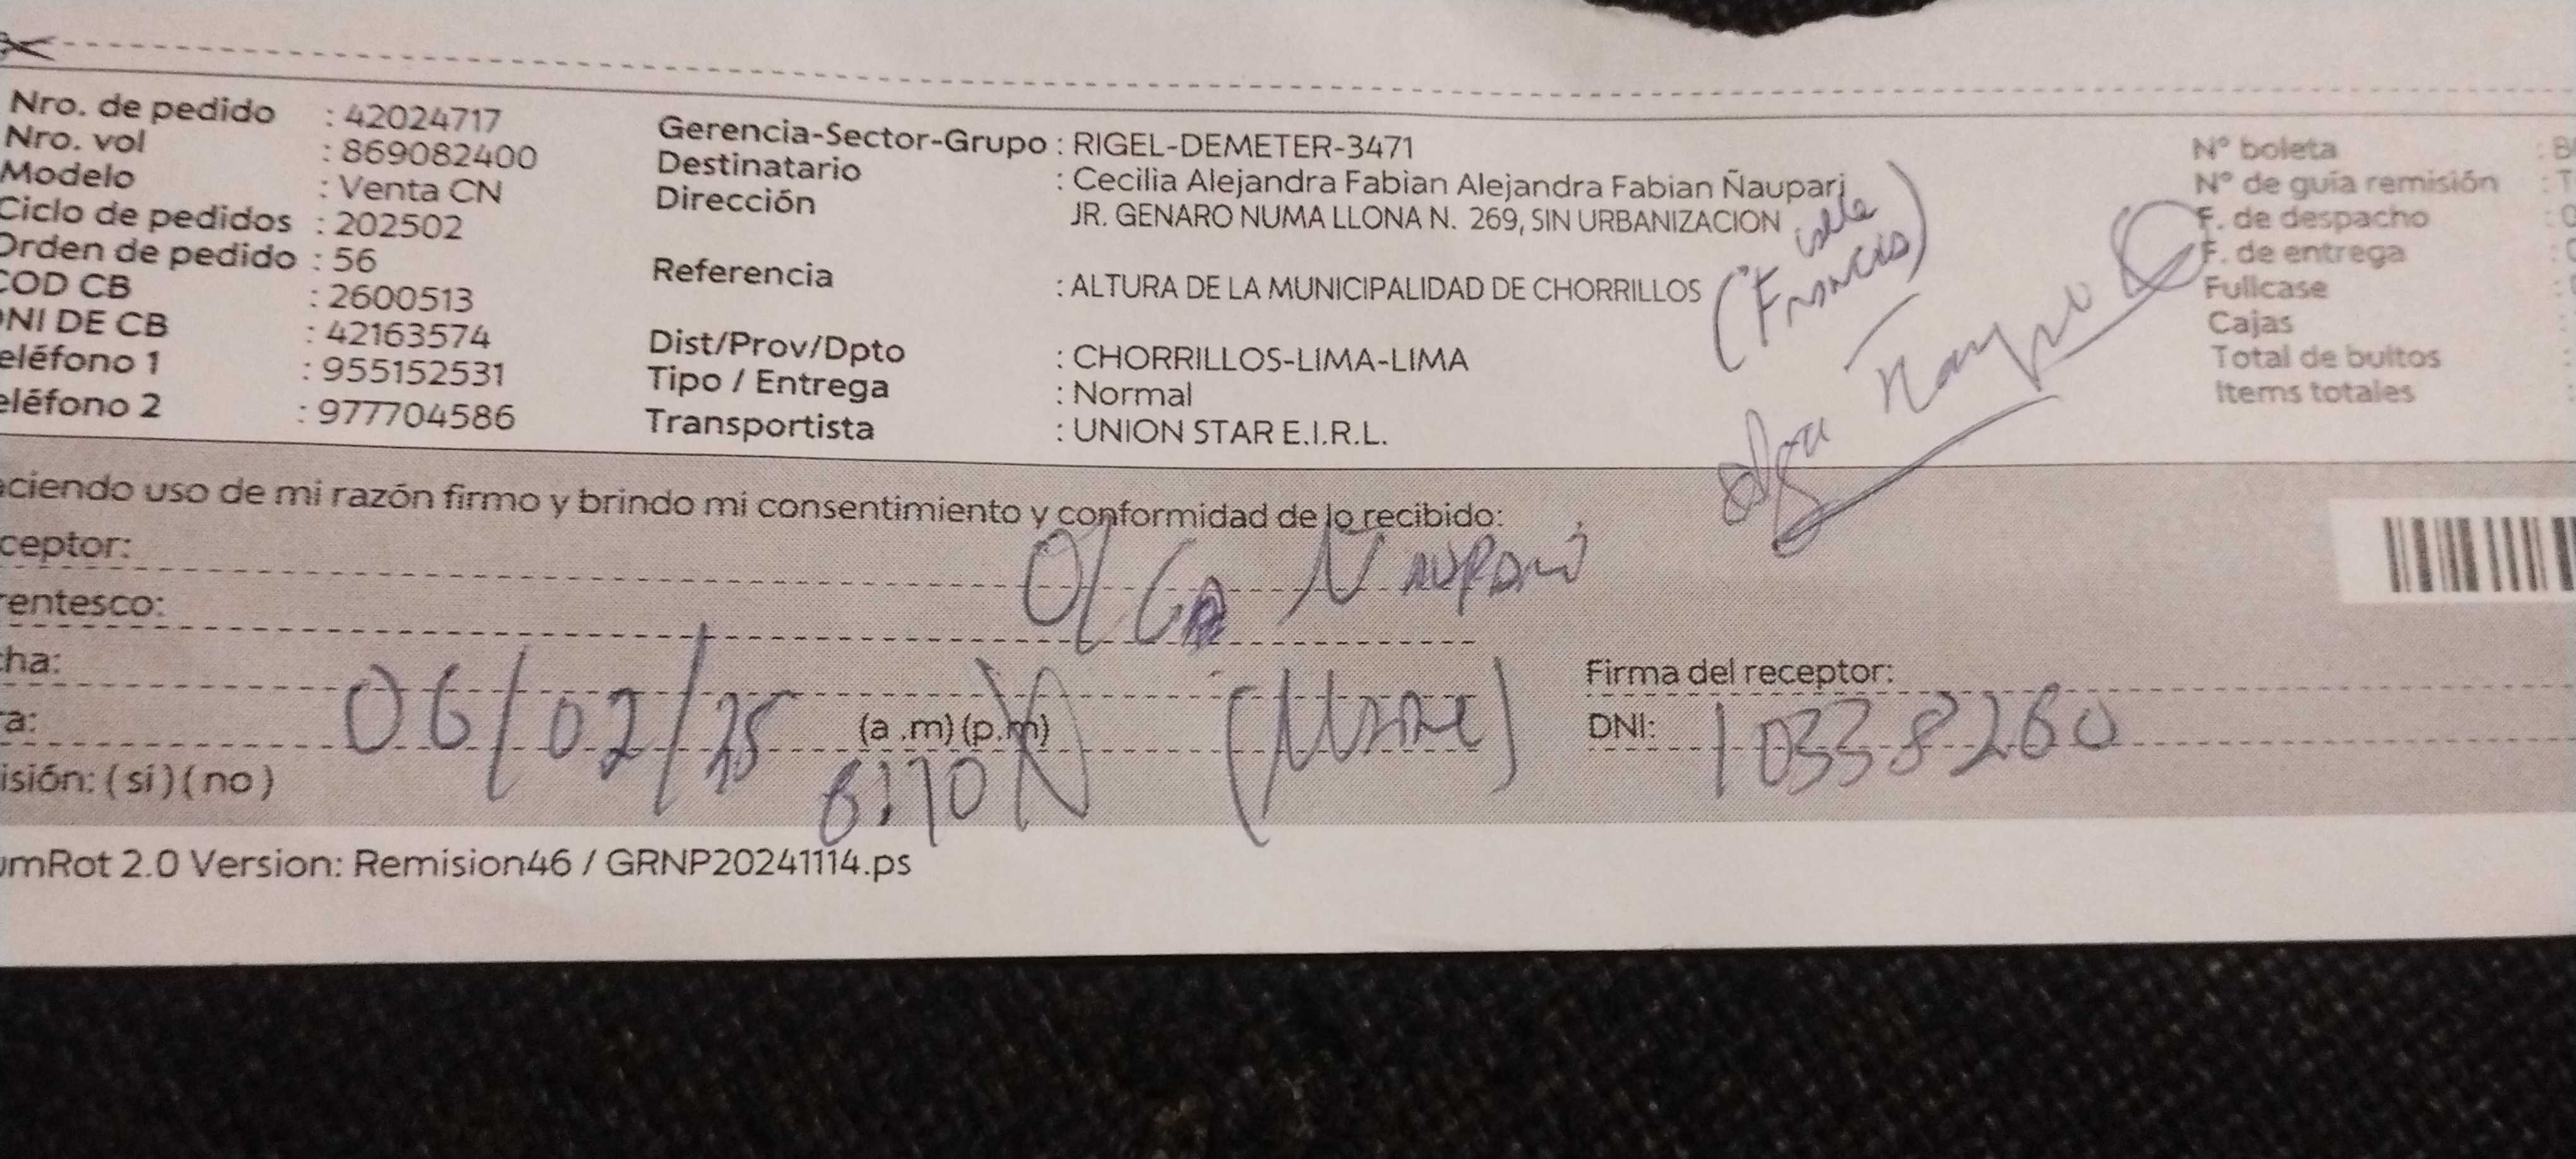 Nro. de pedido : 42024717
Nro. vol : 869082400
Modelo : Venta CN
Ciclo de pedidos : 202502
Orden de pedido : 56
COD CB : 2600513
DNI DE CB : 42163574
eléfono 1 : 955152531
eléfono 2 : 977704586
Gerencia-Sector-Grupo : RIGEL-DEMETER-3471
Destinatario : Cecilia Alejandra Fabian Alejandra Fabian Ñaupari
Dirección JR. GENARO NUMA LLONA N. 269, SIN URBANIZACION
Referencia : ALTURA DE LA MUNICIPALIDAD DE CHORRILLOS
Dist/Prov/Dpto : CHORRILLOS-LIMA-LIMA
Tipo / Entrega : Normal
Transportista : UNION STAR E.I.R.L.
(calle
Francis)
Olga Ñaupari
N° boleta : B
N° de guía remisión : T
F. de despacho : 0
F. de entrega
Fullcase
Cajas
Total de bultos
Items totales
aciendo uso de mi razón firmo y brindo mi consentimiento y conformidad de lo recibido:
ceptor: OlGA ÑAUPARi
rentesco:
cha: 06/02/25 (MADRE)
ra: (a .m) (p.m)
6:10
Firma del receptor:
DNI: 10338260
isión: ( si ) ( no )
umRot 2.0 Version: Remision46 / GRNP20241114.ps